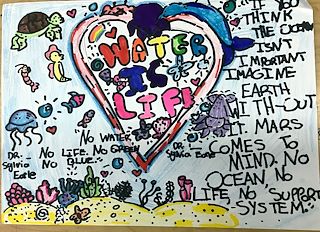 WATER
IS
LIFE
"NO WATER
NO LIFE. NO GREEN
NO BLUE."
DR.
Sylvia
Earle
IF YOU
THINK
THE OCEAN
ISN'T
IMPORTANT
IMAGINE
EARTH
WITH-OUT
IT. MARS
COMES TO
MIND. NO
OCEAN NO
LIFE, NO SUPPORT
SYSTEM."
DR.
Sylvia Earle